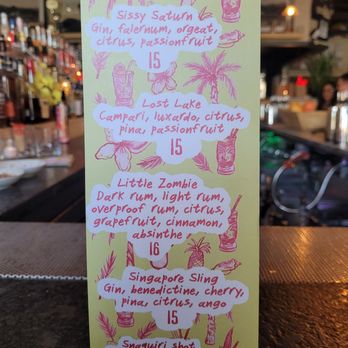 Sissy Saturn
Gin, falernum, orgeat,
citrus, passionfruit
15
Lost Lake
Campari, luxardo, citrus,
pina, passionfruit
15
Little Zombie
Dark rum, light rum,
overproof rum, citrus,
grapefruit, cinnamon,
absinthe
16
Singapore Sling
Gin, benedictine, cherry,
pina, citrus, ango
15
Snaquiri shot